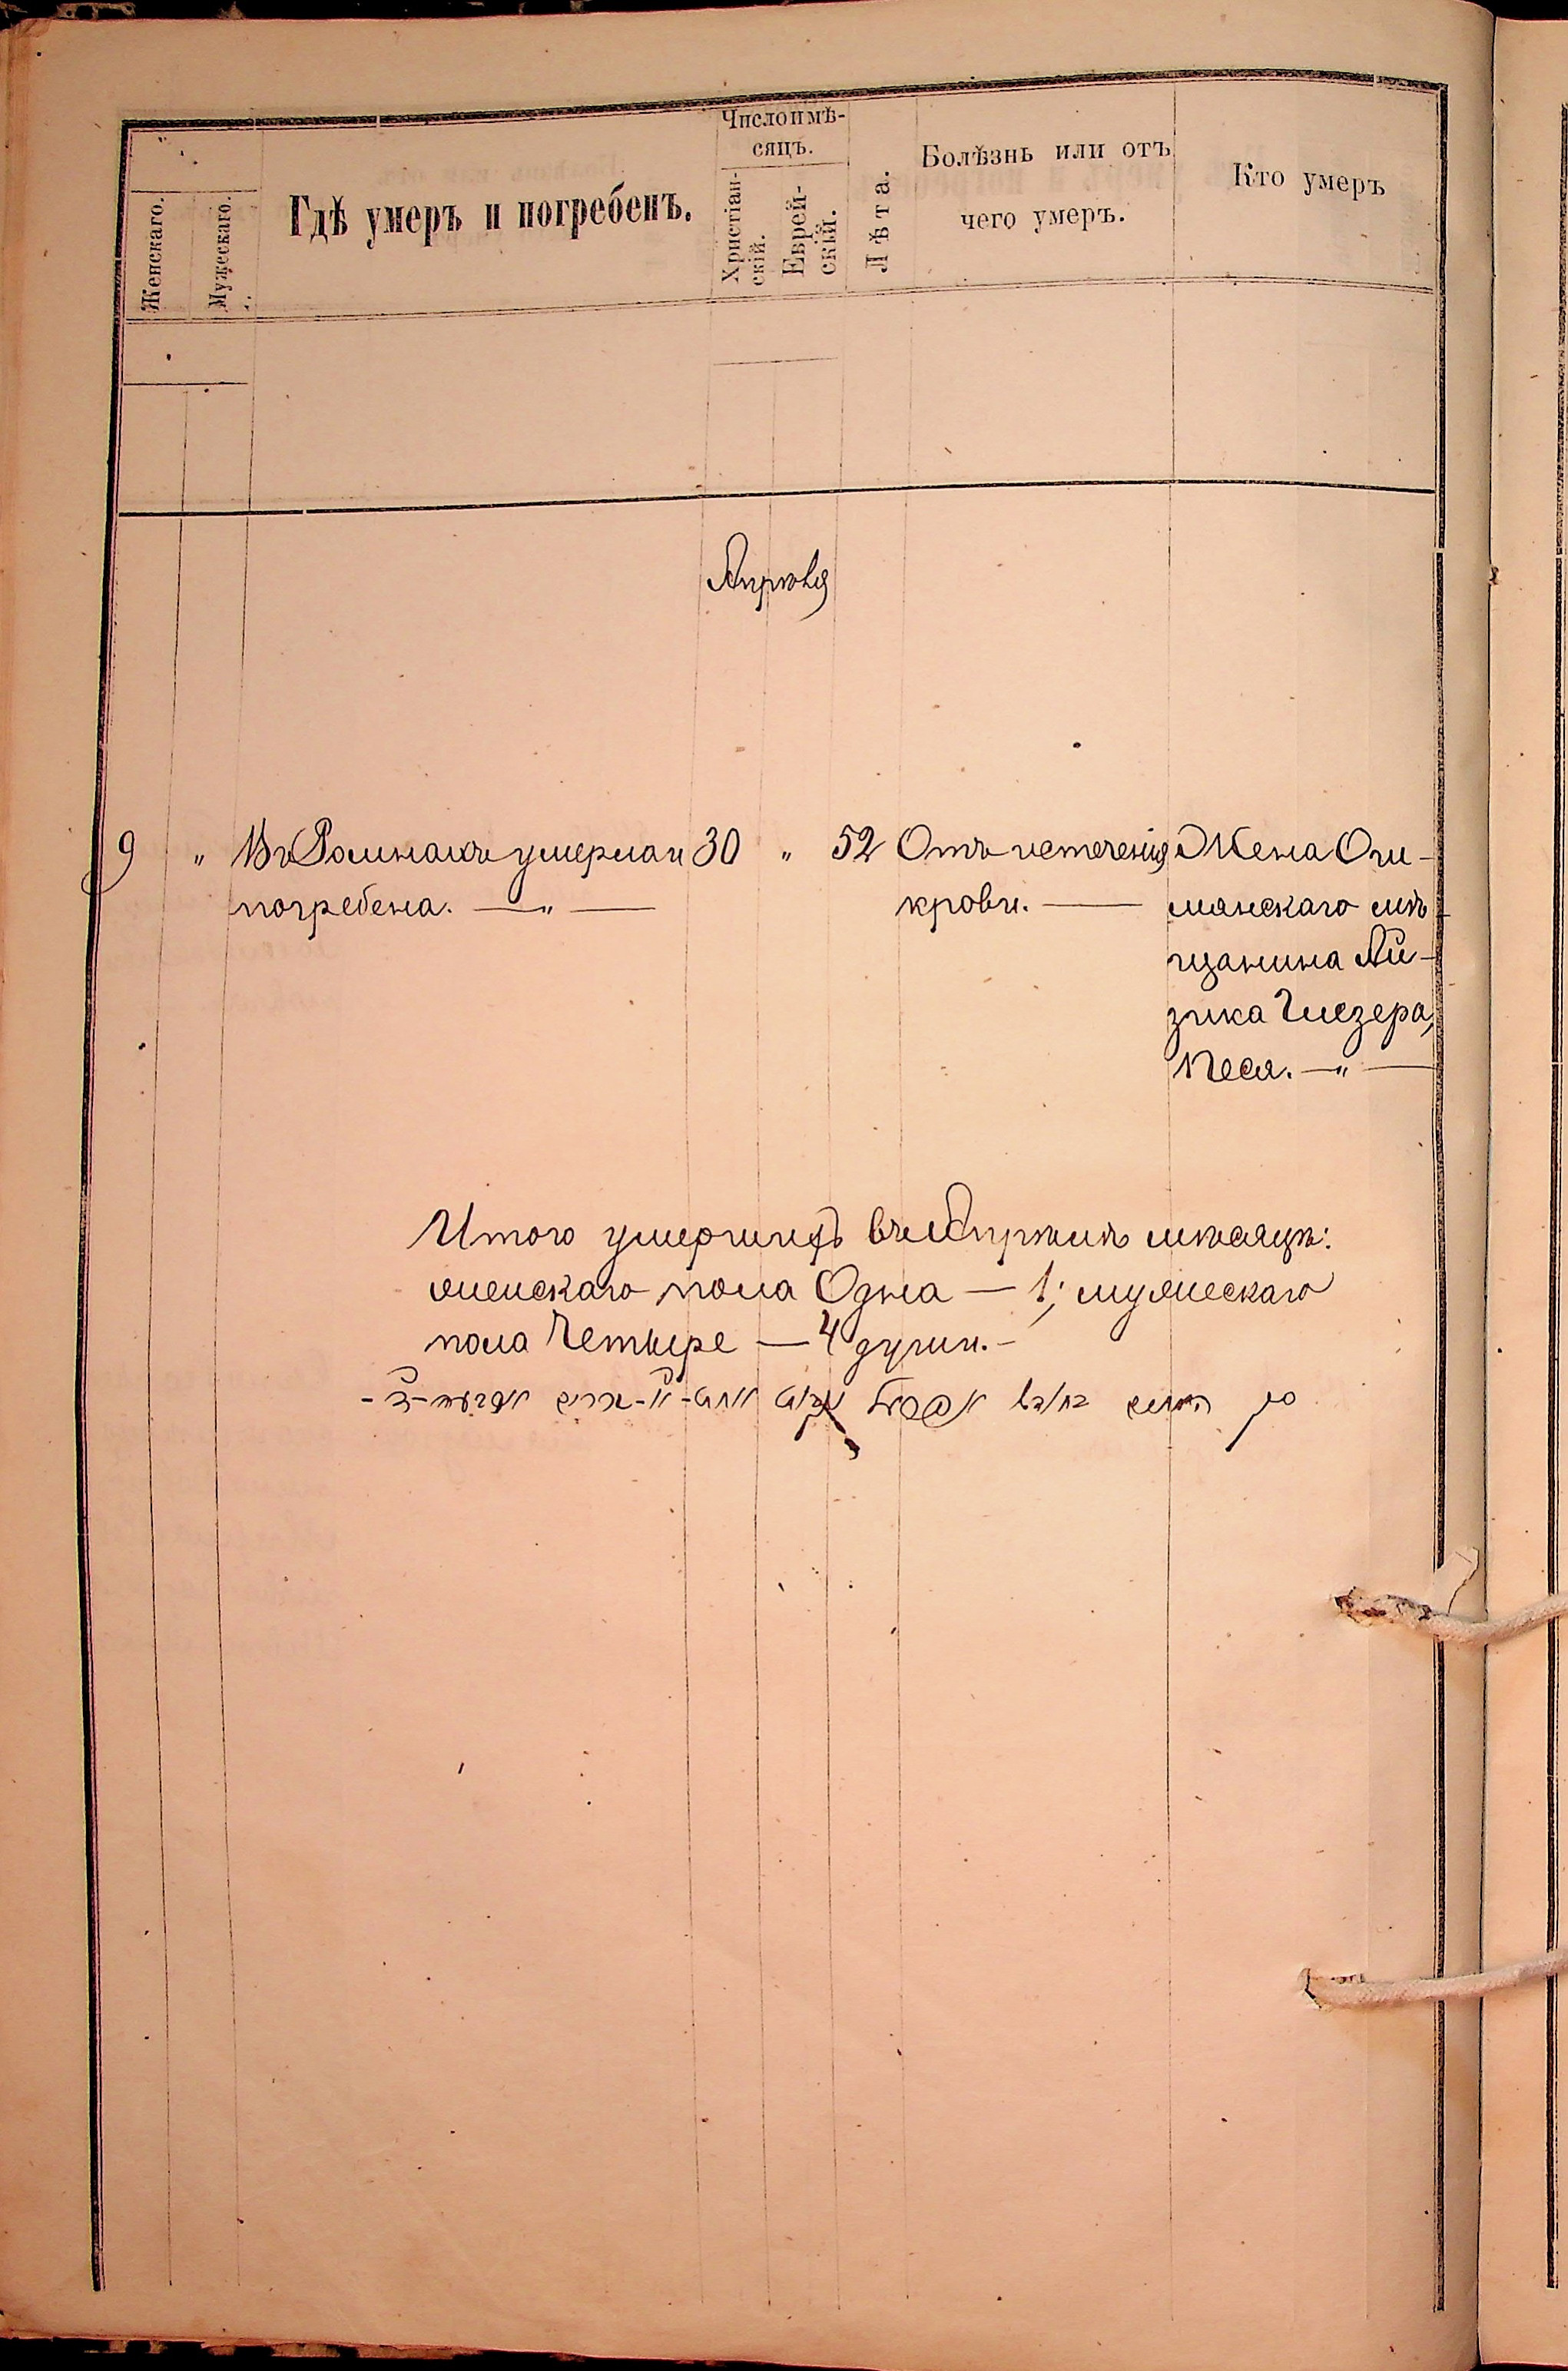 Женскаго.
Мужескаго.
Гдѣ умеръ и погребенъ.
Число и мѣ-
сяцъ.
Христіан-
скій.
Еврей-
скій.
Лѣта.
Болѣзнь или отъ
чего умеръ.
Кто умеръ
Апрѣля
9 " Въ Ромнахъ умерла и 30 " 52 Отъ истеченія Жена Ош-
погребена. — " — крови. — мянскаго мѣ-
щанина Ай-
зика Глезера,
Песя. — " —
Итого умершихъ въ Апрѣлѣ мѣсяцѣ:
женскаго пола Одна — 1; мужескаго
пола Четыре — 4 души. —